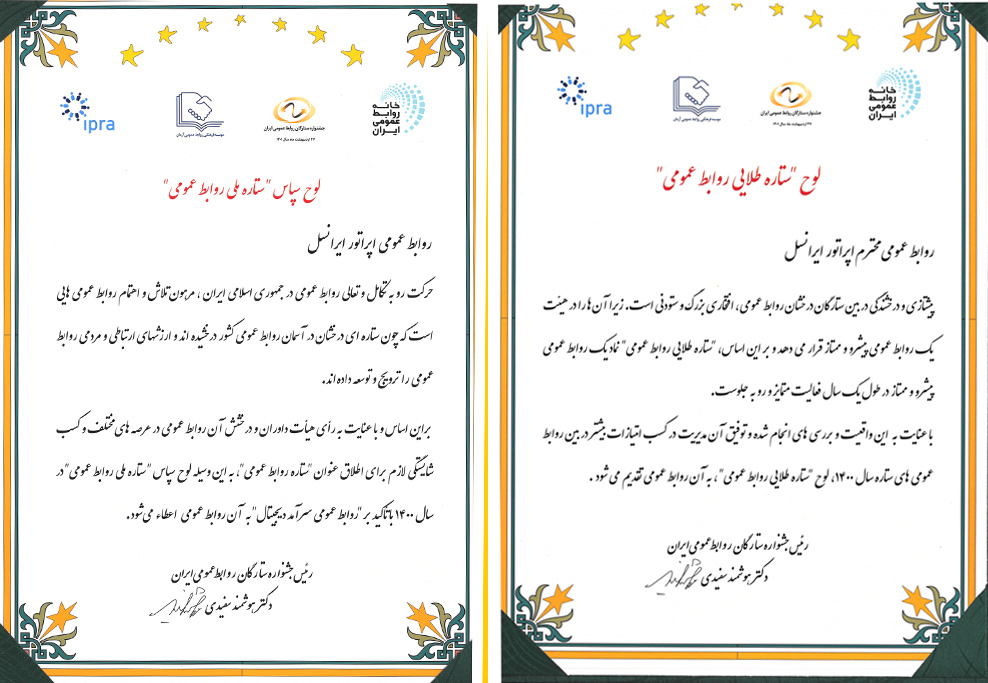 ipra
موسسه فرهنگی روابط عمومی آرمان
جشنواره ستارگان روابط عمومی ایران
خانه
روابط
عمومی
ایران
لوح "ستاره طلایی روابط عمومی"
روابط عمومی محترم اپراتور ایرانسل
پیشتازی و درخشندگی در بین ستارگان درخشان روابط عمومی، افتخاری بزرگ و ستودنی است. زیرا آن ها را در هیئت
یک روابط عمومی پیشرو و ممتاز قرار می دهد و بر این اساس، "ستاره طلایی روابط عمومی" نماد یک روابط عمومی
پیشرو و ممتاز در طول یک سال فعالیت متمایز و رو به جلوست.
با عنایت به این واقعیت و بررسی های انجام شده و توفیق آن مدیریت در کسب امتیازات بیشتر در بین روابط
عمومی های ستاره سال ۱۴۰۰، لوح "ستاره طلایی روابط عمومی"، به آن روابط عمومی تقدیم می شود .
رئیس جشنواره ستارگان روابط عمومی ایران
دکتر هوشمند سفیدی
ipra
موسسه فرهنگی روابط عمومی آرمان
جشنواره ستارگان روابط عمومی ایران
خانه
روابط
عمومی
ایران
لوح سپاس "ستاره ملی روابط عمومی"
روابط عمومی اپراتور ایرانسل
حرکت رو به تکامل و تعالی روابط عمومی در جمهوری اسلامی ایران ، مرهون تلاش و اهتمام روابط عمومی هایی
است که چون ستاره ای درخشان در آسمان روابط عمومی کشور درخشیده اند و ارزشهای ارتباطی و مردمی روابط
عمومی را ترویج و توسعه داده اند.
براین اساس و با عنایت به رأی هیأت داوران و درخشش آن روابط عمومی در عرصه های مختلف و کسب
شایستگی لازم برای اطلاق عنوان "ستاره روابط عمومی"، به این وسیله لوح سپاس "ستاره ملی روابط عمومی" در
سال ۱۴۰۰ با تاکید بر "روابط عمومی سرآمد دیجیتال" به آن روابط عمومی اعطاء می شود.
رئیس جشنواره ستارگان روابط عمومی ایران
دکتر هوشمند سفیدی